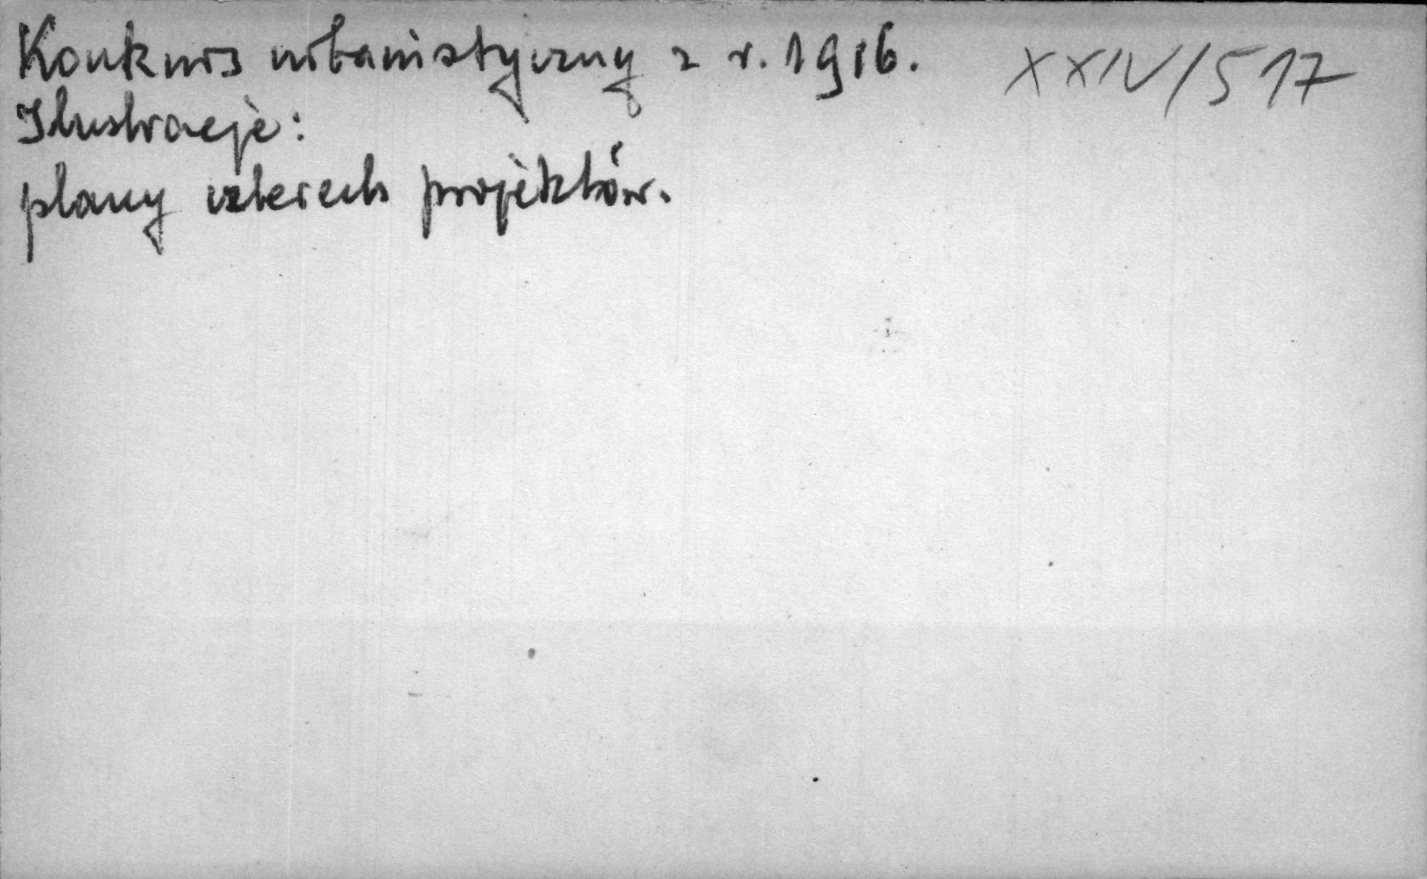 Konkurs urbanistyczny z r. 1916. XXIV/517
Ilustracje:
plany czterech projektów.